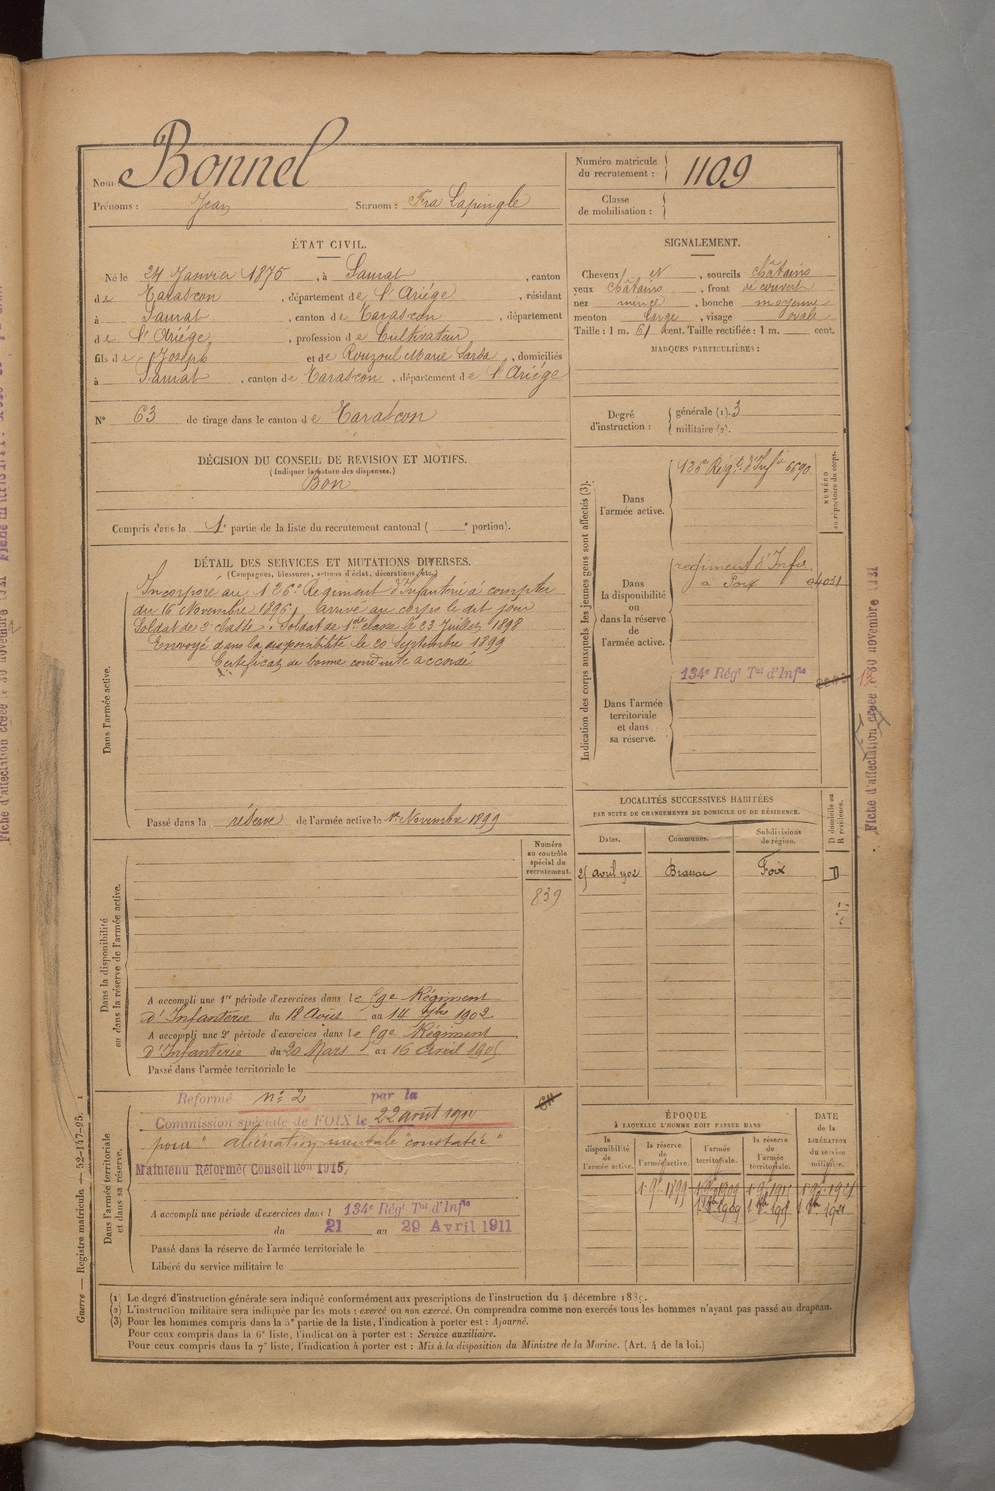 Nom Bonnel
Prénoms : Jean Surnom : Fra Lapingle
Numéro matricule du recrutement : 1109
Classe de mobilisation :
ÉTAT CIVIL.
Né le 24 Janvier 1875, à Saurat, canton
de Tarascon, département de l'Ariège, résidant
à Saurat, canton de Tarascon, département
de l'Ariège, profession de Cultivateur
fils de Joseph et de Rouzoul Marie Sarda, domiciliés
à Saurat, canton de Tarascon, département de l'Ariège
N° 63 de tirage dans le canton de Tarascon
SIGNALEMENT.
Cheveux et, sourcils châtains
yeux châtains, front découvert
nez mince, bouche moyenne
menton large, visage ovale
Taille : 1 m. 61 cent. Taille rectifiée : 1 m. cent.
MARQUES PARTICULIÈRES :
Degré d'instruction : générale (1). 3
militaire (2).
DÉCISION DU CONSEIL DE REVISION ET MOTIFS.
(Indiquer la nature des dispenses.)
Bon
Compris dans la 1e partie de la liste du recrutement cantonal ( e portion).
DÉTAIL DES SERVICES ET MUTATIONS DIVERSES.
(Campagnes, blessures, actions d'éclat, décorations, etc.)
Dans l'armée active.
Incorporé au 126e Régiment d'Infanterie à compter
du 16 Novembre 1896, arrivé au corps le dit jour
Soldat de 2e classe. Soldat de 1ère classe le 23 Juillet 1898
Envoyé dans la disponibilité le 20 Septembre 1899
Certificat de bonne conduite accordé
Passé dans la réserve de l'armée active le 1er Novembre 1899
Indication des corps auxquels les jeunes gens sont affectés (3).
NUMÉRO au répertoire du corps.
Dans l'armée active.
126e Régt. d'Infie 6690
Dans la disponibilité ou dans la réserve de l'armée active.
régiment d'Infie
à Foix 04031
Dans l'armée territoriale et dans sa réserve.
134e Régt Tal d'Infie
Fiche d'affectation créée le 30 novembre 1921
LOCALITÉS SUCCESSIVES HABITÉES
PAR SUITE DE CHANGEMENTS DE DOMICILE OU DE RÉSIDENCE.
Dates. Communes. Subdivisions de région. D domicile ou R résidence.
25 avril 1902 Brassac Foix D
Dans la disponibilité ou dans la réserve de l'armée active.
Numéro au contrôle spécial du recrutement.
839
A accompli une 1re période d'exercices dans le 59e Régiment
d'Infanterie du 18 Août au 14 7bre 1902
A accompli une 2e période d'exercices dans le 59e Régiment
d'Infanterie du 20 Mars au 16 Avril 1905
Passé dans l'armée territoriale le
Dans l'armée territoriale et dans sa réserve.
Réformé n° 2 par la
Commission spéciale de FOIX le 22 août 1914
pour " aliénation mentale constatée "
Maintenu Réformé (Conseil Ron 1915)
A accompli une période d'exercices dans l 134e Régt Tal d'Infie
du 21 au 29 Avril 1911
Passé dans la réserve de l'armée territoriale le
Libéré du service militaire le
ÉPOQUE
À LAQUELLE L'HOMME DOIT PASSER DANS
la disponibilité de l'armée active. la réserve de l'armée active. l'armée territoriale. la réserve de l'armée territoriale. DATE de la LIBÉRATION du service militaire.
1 9bre 1899 1 9bre 1909 1 9bre 1915 1 9bre 1921
(1) Le degré d'instruction générale sera indiqué conformément aux prescriptions de l'instruction du 4 décembre 1889.
(2) L'instruction militaire sera indiquée par les mots : exercé ou non exercé. On comprendra comme non exercés tous les hommes n'ayant pas passé au drapeau.
(3) Pour les hommes compris dans la 5e partie de la liste, l'indication à porter est : Ajourné.
Pour ceux compris dans la 6e liste, l'indication à porter est : Service auxiliaire.
Pour ceux compris dans la 7e liste, l'indication à porter est : Mis à la disposition du Ministre de la Marine. (Art. 4 de la loi.)
Guerre — Registre matricule — 52-147-95.